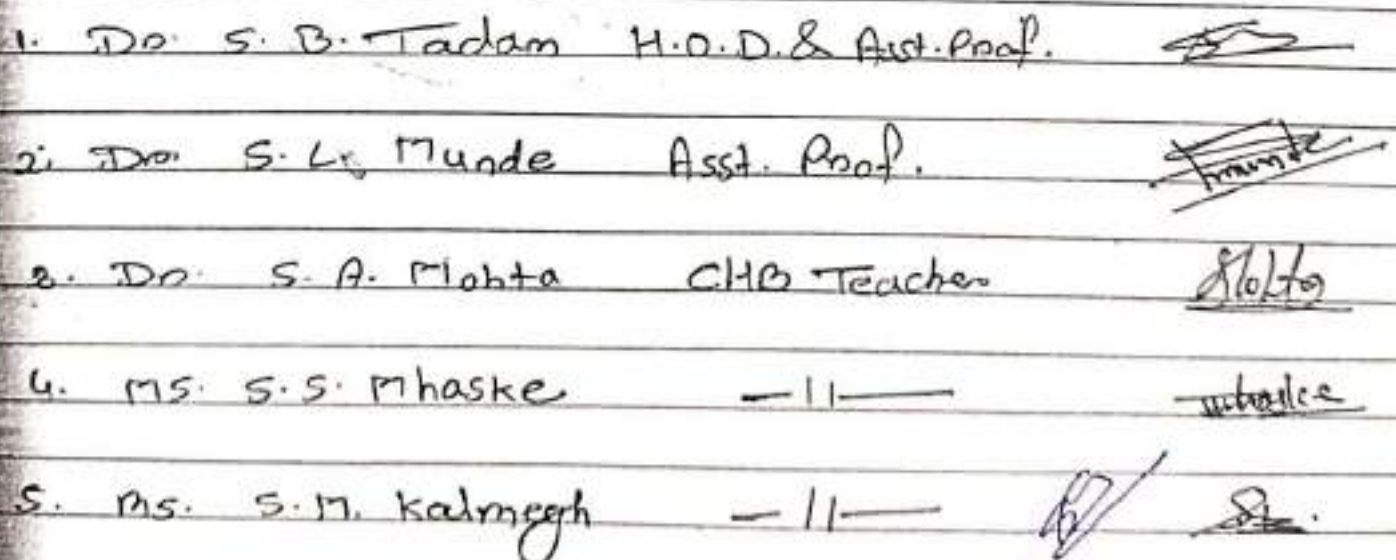 1. Dr. S. B. Tadam H.O.D. & Asst. Prof.
2. Dr. S. L. Munde Asst. Prof. Munde
3. Dr. S. A. Mohta CHB Teacher Mohta
4. Ms. S. S. Mhaske —11— Mhaske
5. Ms. S. M. Kalmegh —11—